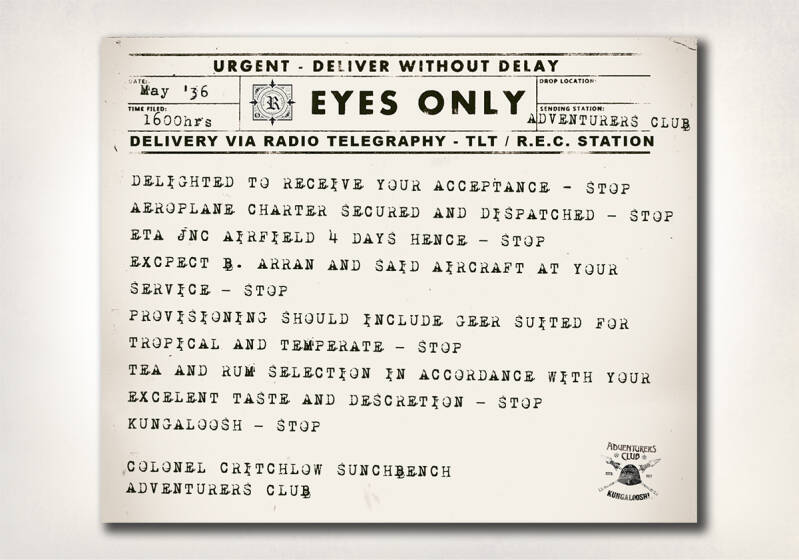 URGENT - DELIVER WITHOUT DELAY
DATE:
May '36
TIME FILED:
1600hrs
R
EYES ONLY
DROP LOCATION:
SENDING STATION:
ADVENTURERS CLUB
DELIVERY VIA RADIO TELEGRAPHY - TLT / R.E.C. STATION
DELIGHTED TO RECEIVE YOUR ACCEPTANCE - STOP
AEROPLANE CHARTER SECURED AND DISPATCHED - STOP
ETA JNC AIRFIELD 4 DAYS HENCE - STOP
EXCPECT B. ARRAN AND SAID AIRCRAFT AT YOUR
SERVICE - STOP
PROVISIONING SHOULD INCLUDE GEER SUITED FOR
TROPICAL AND TEMPERATE - STOP
TEA AND RUM SELECTION IN ACCORDANCE WITH YOUR
EXCELENT TASTE AND DESCRETION - STOP
KUNGALOOSH - STOP
COLONEL CRITCHLOW SUNCHBENCH
ADVENTURERS CLUB
ADVENTURERS
CLUB
KUNGALOOSH!